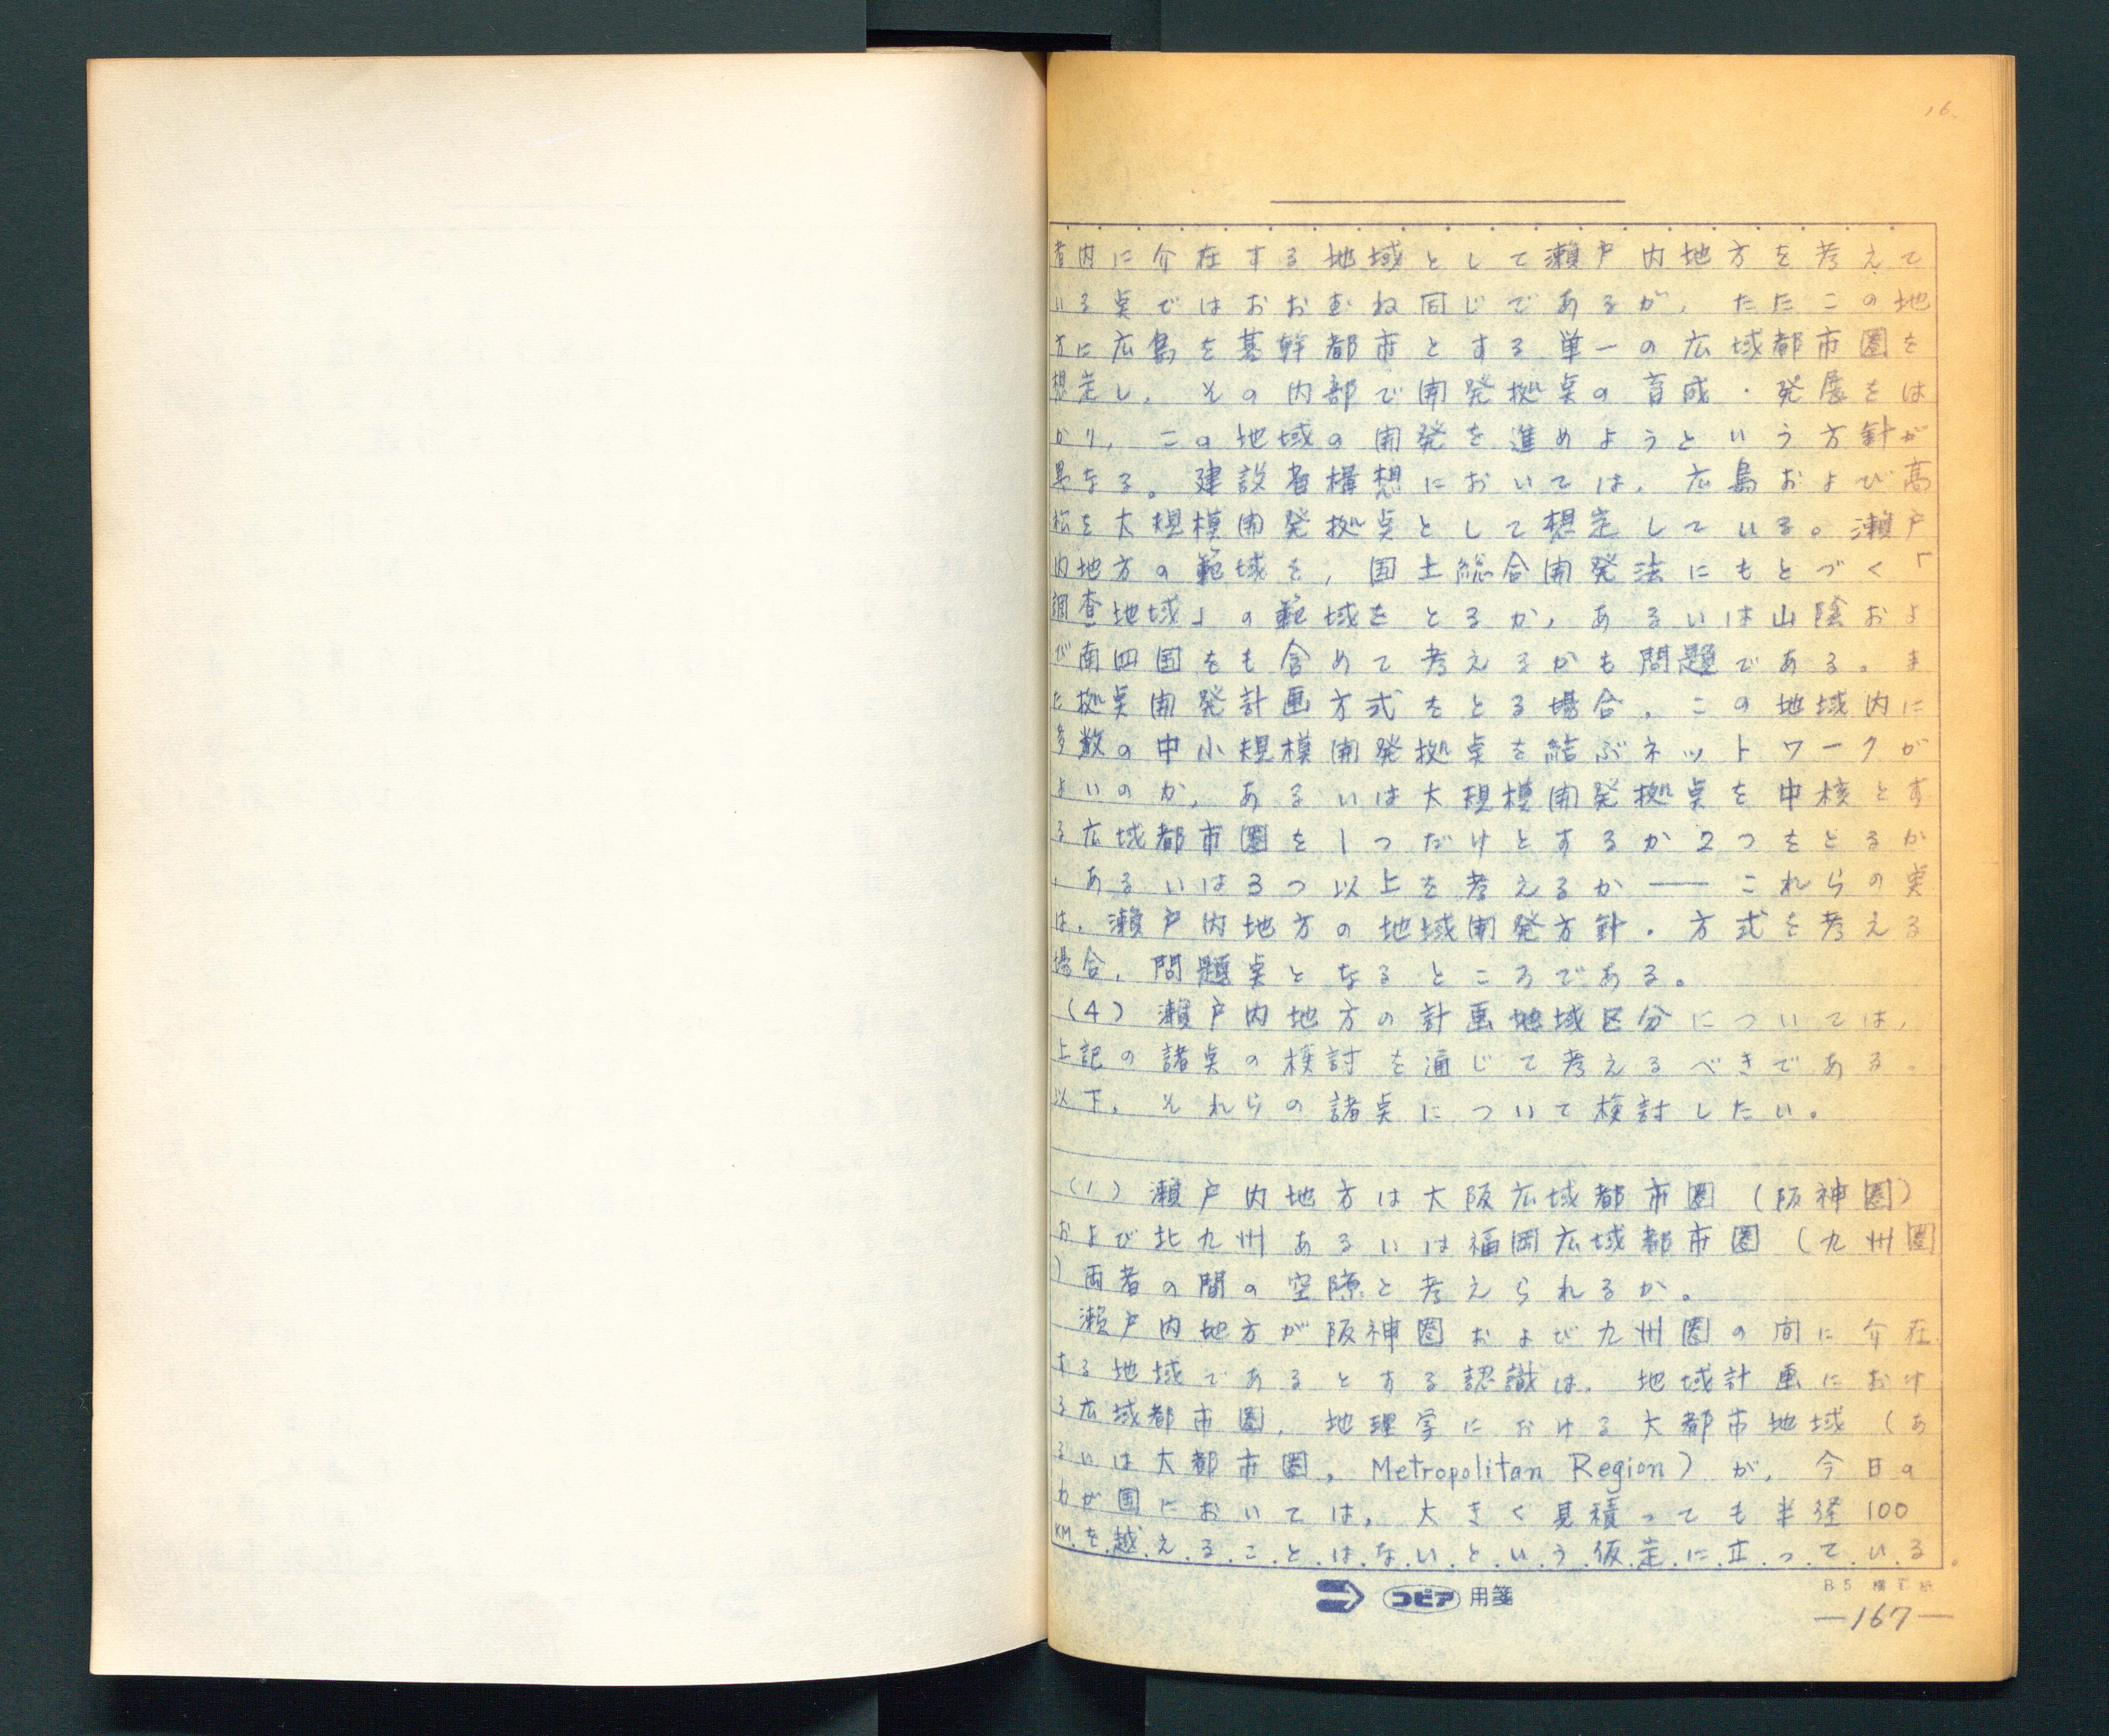 16.
者内に介在する地域として瀬戸内地方を考えて
いる点ではおおむね同じであるが，ただこの地
方に広島を基幹都市とする単一の広域都市圏を
想定し，その内部で開発拠点の育成・発展をは
かり，この地域の開発を進めようという方針が
異なる。建設省構想においては，広島および高
松を大規模開発拠点として想定している。瀬戸
内地方の範域を，国土総合開発法にもとづく「
調査地域」の範域をとるか，あるいは山陰およ
び南四国をも含めて考えるかも問題である。ま
た拠点開発計画方式をとる場合，この地域内に
多数の中小規模開発拠点を結ぶネットワークが
よいのか，あるいは大規模開発拠点を中核とす
る広域都市圏を1つだけとするか2つをとるか
，あるいは3つ以上を考えるか――これらの点
は，瀬戸内地方の地域開発方針・方式を考える
場合，問題点となるところである。
(4) 瀬戸内地方の計画地域区分については，
上記の諸点の検討を通じて考えるべきである。
以下，それらの諸点について検討したい。
(1) 瀬戸内地方は大阪広域都市圏（阪神圏）
および北九州あるいは福岡広域都市圏（九州圏
）両者の間の空隙と考えられるか。
瀬戸内地方が阪神圏および九州圏の間に介在
する地域であるとする認識は，地域計画におけ
る広域都市圏，地理学における大都市地域（あ
るいは大都市圏，Metropolitan Region）が，今日の
わが国においては，大きく見積っても半径100
KMを越えることはないという仮定に立っている。
コピア用箋
B5
—167—